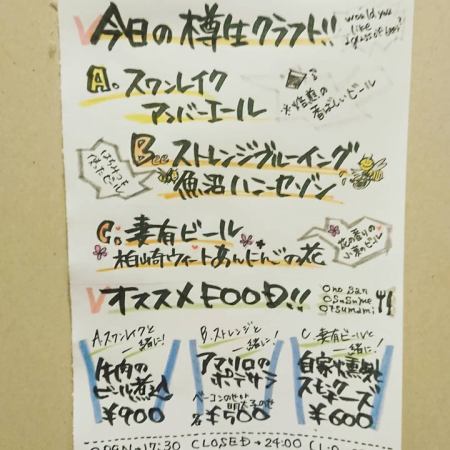 今日の樽生クラフト!!
would you
like
a glass of beer?
A. スワンレイク
アンバーエール
※焙煎の
香ばしいビール
Bee ストレンジブルーイング
魚沼ハニーセゾン
はちみつを
使ったビール
C. 妻有ビール
柏崎ウィートあんにんごの花
花の香りの
小麦のビール
オススメFOOD!!
Ono San
OSuSume
OTsumami
A.スワンレイクと
一緒に!
牛肉の
ビール煮込
¥900
B.ストレンジと
一緒に!
アマリロの
ポテサラ
ベーコンのせor
明太子のせ
各¥500
C.妻有ビールと
一緒に!
自家燻製
¥600
OPEN→17:30 CLOSED→24:00